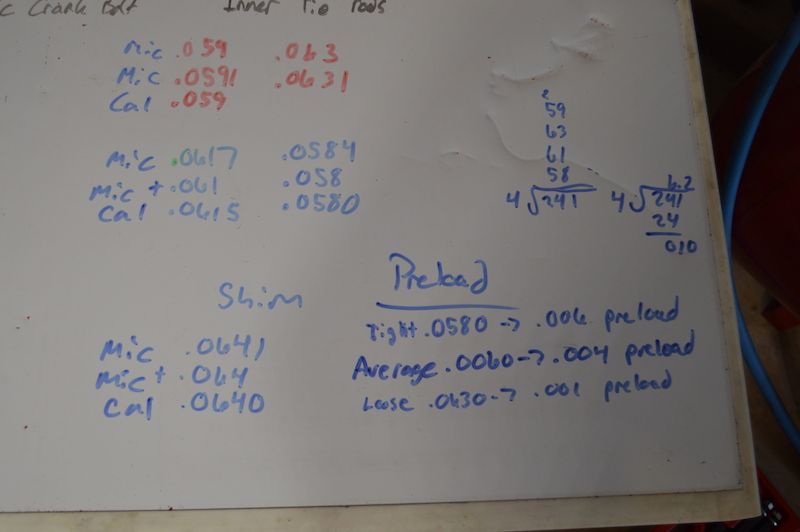 c Crank Bolt Inner Tie Rods
Mic .059 .063
Mic .0591 .0631
Cal .059
Mic .0617 .0584
Mic + .061 .058
Cal .0615 .0580
2
59
63
61
58
4 √241
6.2
4 √241
24
010
Shim
Mic .0641
Mic + .064
Cal .0640
Preload
Tight .0580 -> .006 preload
Average .0060 -> .004 preload
Loose .0630 -> .001 preload